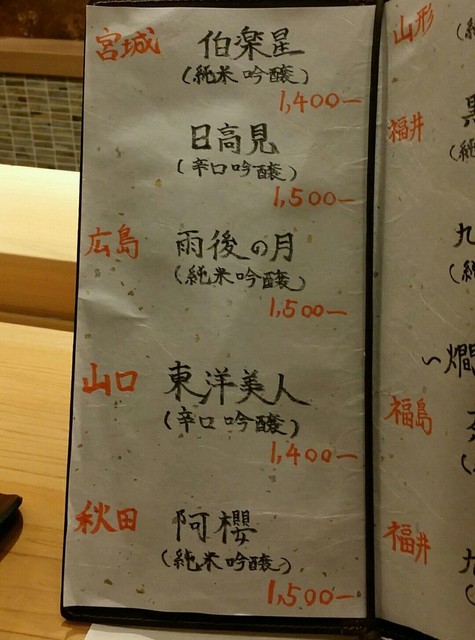 宮城 伯楽星
(純米吟醸)
1,400—
日高見
(辛口吟醸)
1,500—
広島 雨後の月
(純米吟醸)
1,500—
山口 東洋美人
(辛口吟醸)
1,400—
秋田 阿櫻
(純米吟醸)
1,500—
山形
福井
九
福島
福井